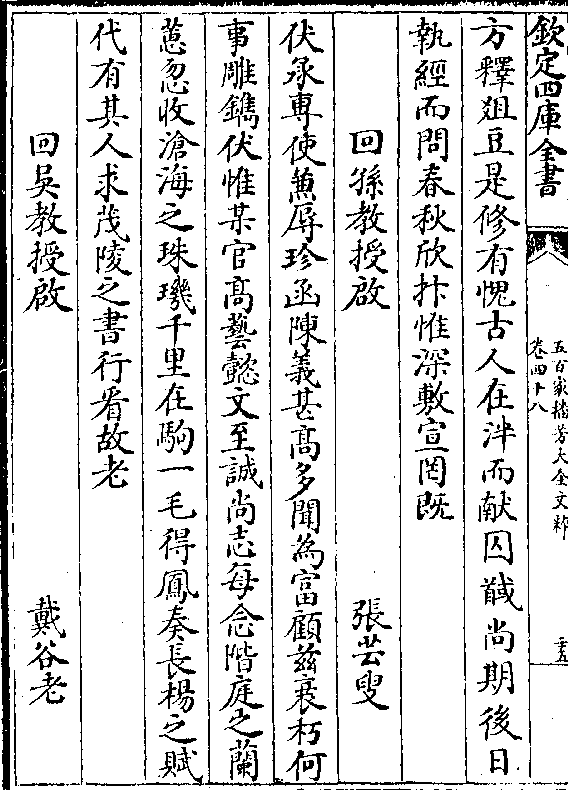 欽定四庫全書
五百家播芳大全文粹
卷四十八
二十五
方釋俎豆是修有愧古人在泮而献囚馘尚期後日
執經而問春秋欣抃惟深敷宣罔既
回孫教授啟 張芸叟
伏承專使兼辱珍函陳義甚髙多聞為富顧兹衰朽何
事雕鐫伏惟某官髙藝懿文至誠尚志每念階庭之蘭
蕙忽收滄海之珠璣千里在駒一毛得鳳奏長楊之賦
代有其人求茂陵之書行看故老
回吳教授啟 戴谷老